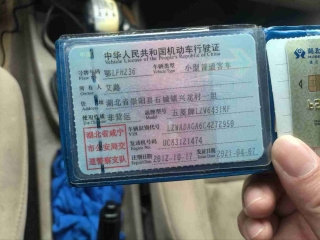 中华人民共和国机动车行驶证
Vehicle License of the People's Republic of China
号牌号码 鄂LFH236 车辆类型 小型普通客车
Vehicle Type
所有人 艾鑫
住址 湖北省崇阳县石城镇兴龙村一组
使用性质 非营运 品牌型号 五菱牌LZW6431KF
湖北省咸宁
市公安局交
通警察支队
车辆识别代号 LZWADAGA6C4272950
发动机号码 UC83121474
注册日期 2012-10-17 发证日期 2021-04-07
湖北